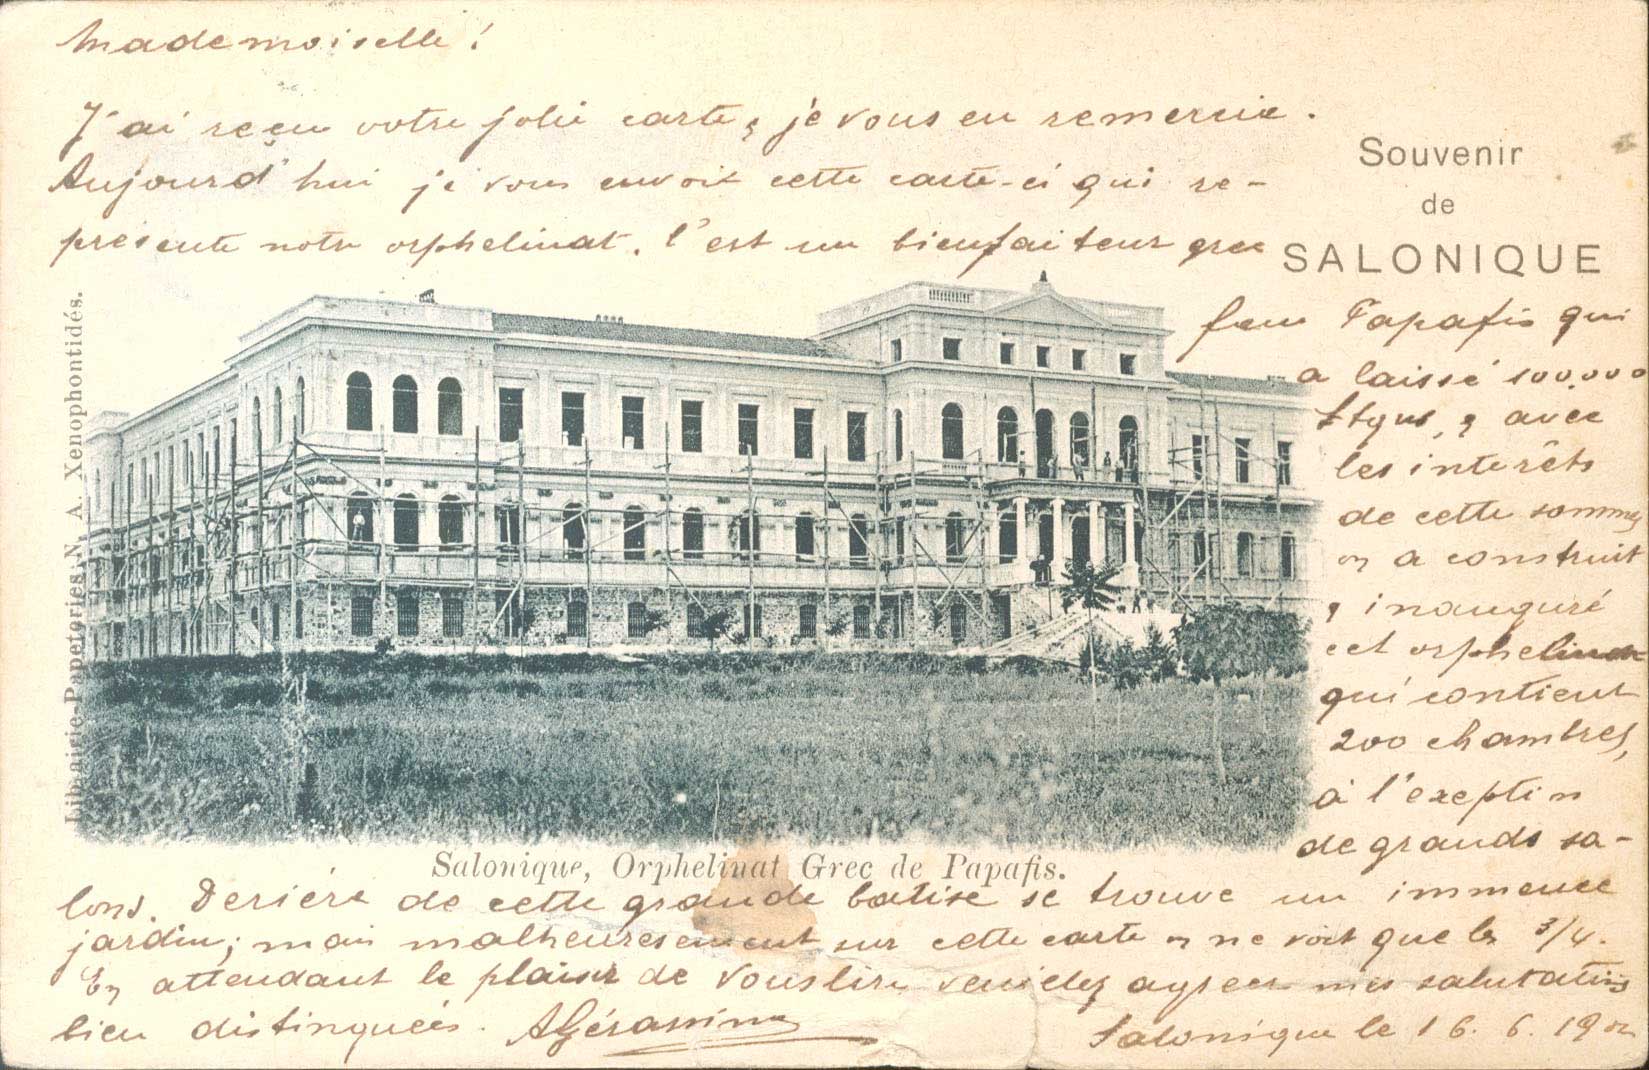 Mademoiselle!
J'ai reçu votre jolie carte, je vous en remercie.
Aujourd'hui je vous envoit cette carte-ci qui re-
présente notre orphelinat. C'est un bienfaiteur grec
Souvenir
de
SALONIQUE
feu Papafis qui
a laissé 100.000
Ltques, & avec
les interêts
de cette somme,
on a construit
& inauguré
cet orphelinat
qui contient
200 chambres,
à l'exeption
de grands sa-
Librairie-Papeteries, N. A. Xenophontidés.
Salonique, Orphelinat Grec de Papafis.
lons. Deriére de cette grande batise se trouve un immence
jardin; mais malheuresement sur cette carte on ne voit que les 3/4.
En attendant le plaisir de vous lire veuillez agréer mes salutations
bien distinguées. AGérassime
Salonique le 16. 6. 190